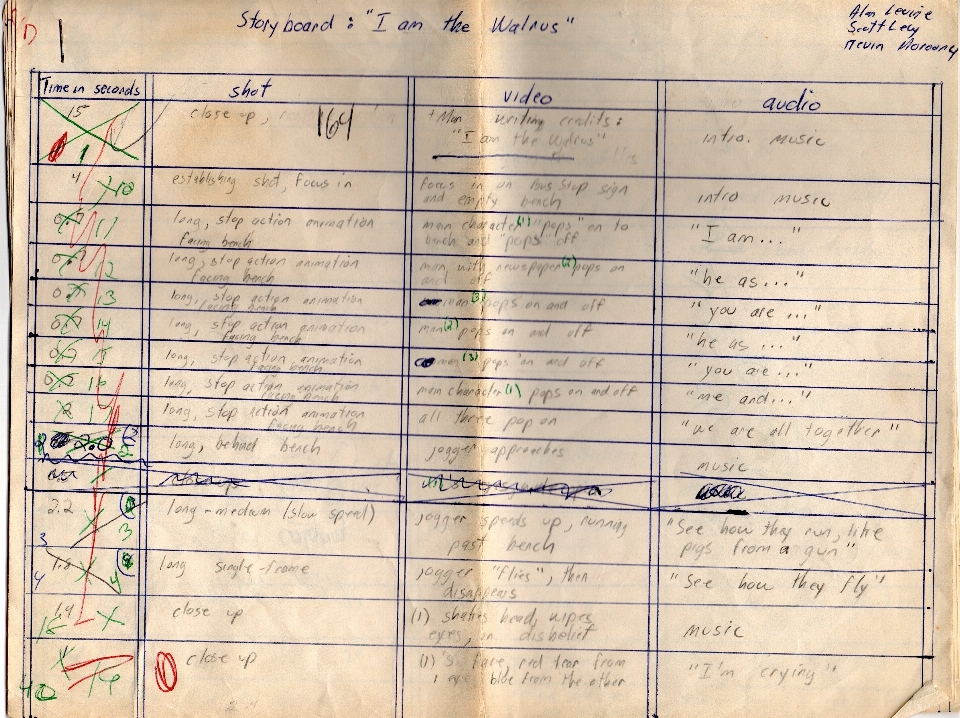 1
Storyboard: "I am the Walrus"
Alan Levine
Scott Levy
Kevin
Time in seconds shot video audio
15 close up, 164 Man writing credits: intro. music
"I am the Walrus"
4 establishing shot, focus in focus in on Bus Stop sign intro music
and empty bench
11 long, stop action animation main character (1) "pops" on to "I am..."
facing bench bench and "pops" off
12 long, stop action animation man with newspaper (2) pops on "he as..."
facing bench and off
13 long, stop action animation man (3) pops on and off "you are ..."
facing bench
14 long, stop action animation man (2) pops on and off "he as ..."
facing bench
long, stop action animation man (3) pops on and off "you are..."
facing bench
16 long, stop action animation main character (1) pops on and off "me and..."
facing bench
2 long, stop action animation all three pop on "we are all together"
facing bench
2.0 long, behind bench jogger approaches music
2.2 long-medium (slow speed) jogger speeds up, running "See how they run, like
3 past bench pigs from a gun"
3
1.8 long single-frame jogger "flies", then "See how they fly"
4 disappears
1.4 close up (1) shakes head, wipes music
eyes, in disbelief
close up (1)'s face, red tear from "I'm crying"
1 eye blue from the other